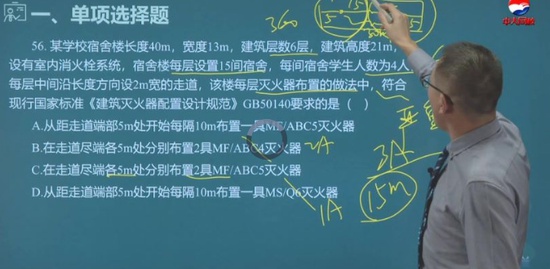 一、单项选择题
360
15
5
56. 某学校宿舍楼长度40m，宽度13m，建筑层数6层，建筑高度21m，
设有室内消火栓系统，宿舍楼每层设置15间宿舍，每间宿舍学生人数为4人，
每层中间沿长度方向设2m宽的走道，该楼每层灭火器布置的做法中，符合
现行国家标准《建筑灭火器配置设计规范》GB50140要求的是（ ）
A.从距走道端部5m处开始每隔10m布置一具MF/ABC5灭火器
B.在走道尽端各5m处分别布置2具MF/ABC4灭火器 2A
C.在走道尽端各5m处分别布置2具MF/ABC5灭火器
D.从距走道端部5m处开始每隔10m布置一具MS/Q6灭火器 1A
严
3A
15m